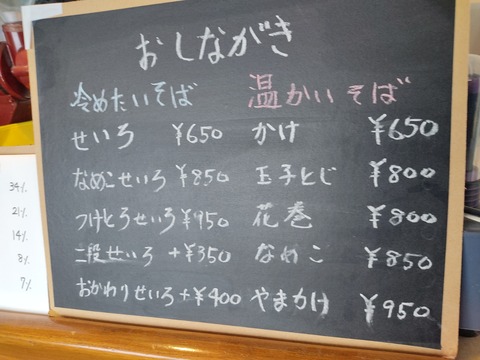 おしながき
冷めたいそば
せいろ ¥650
なめこせいろ ¥850
つけとろせいろ ¥950
二段せいろ +¥350
おかわりせいろ+¥400
温かいそば
かけ ¥650
玉子とじ ¥800
花巻 ¥800
なめこ ¥850
やまかけ ¥950
34%
21%
14%
8%
7%